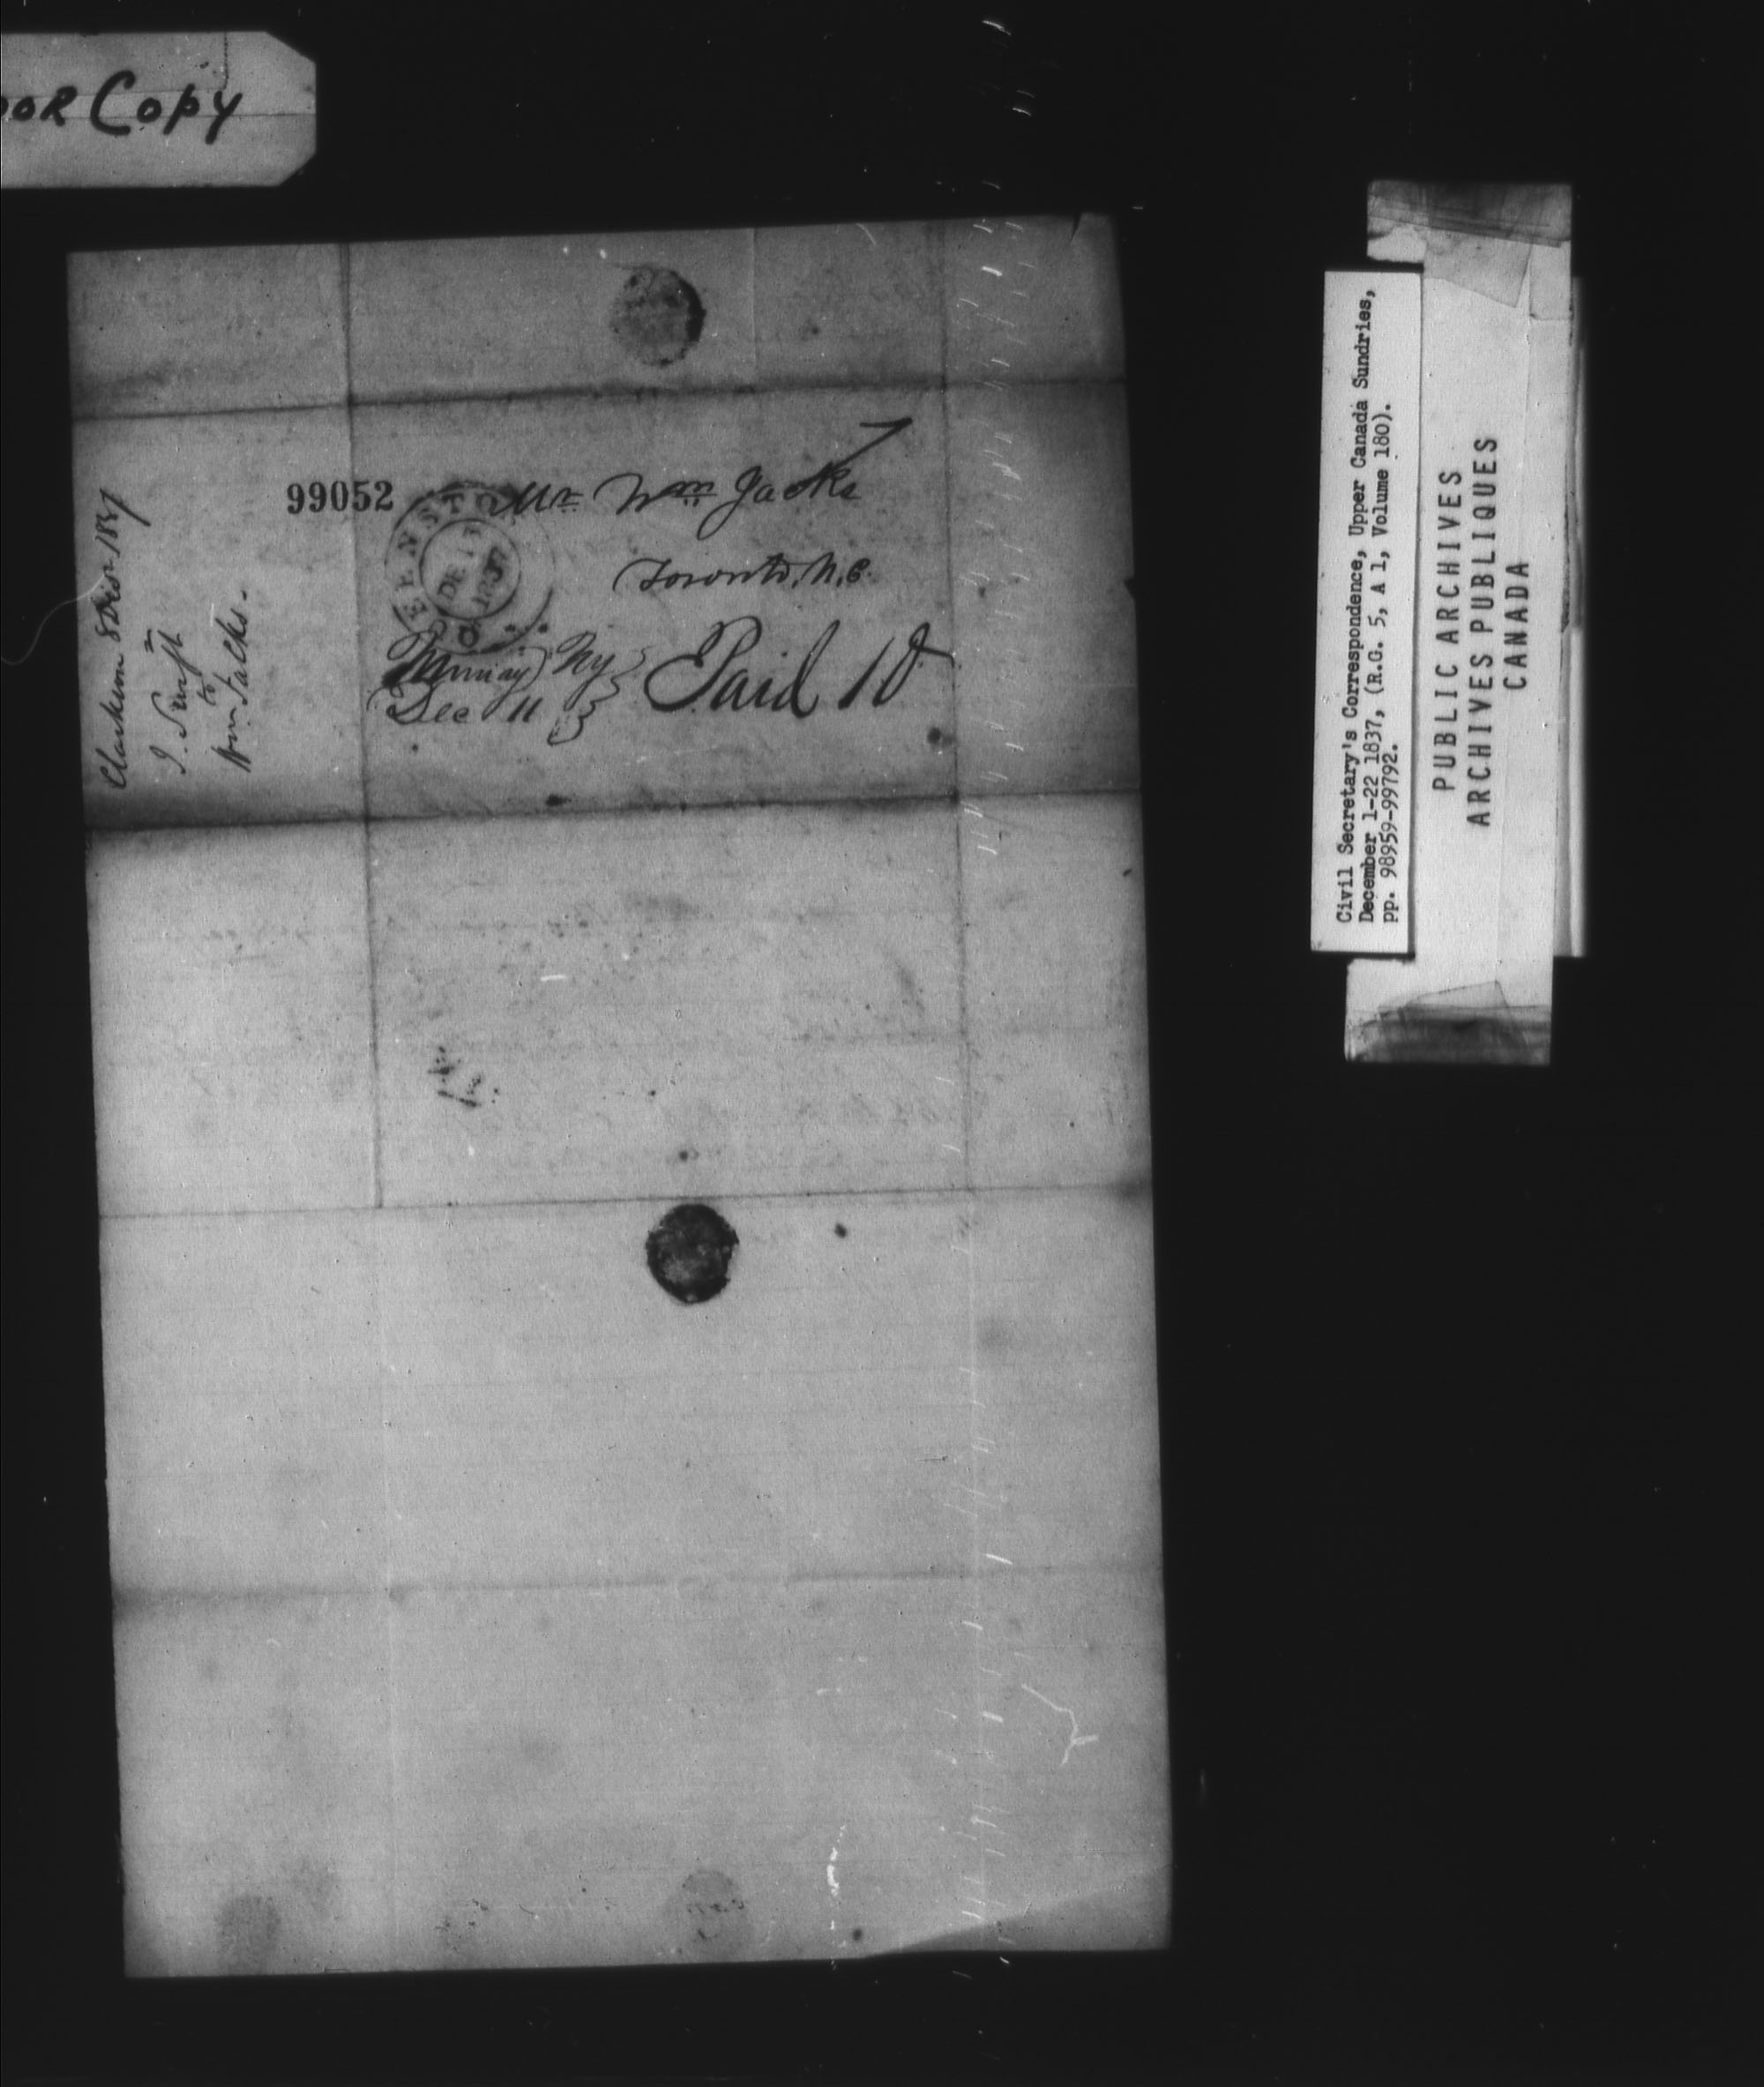 OOR Copy
99052
Mr Wm Jacks
Toronto, U.C.
DE 13
1837
Murray Ny
Dec 11
Paid 10
8 Decr 1837
J. Swift
to
Wm Jacks.
Civil Secretary's Correspondence, Upper Canada Sundries,
December 1-22 1837, (R.G. 5, A 1, Volume 180).
pp. 98959-99792.
PUBLIC ARCHIVES
ARCHIVES PUBLIQUES
CANADA